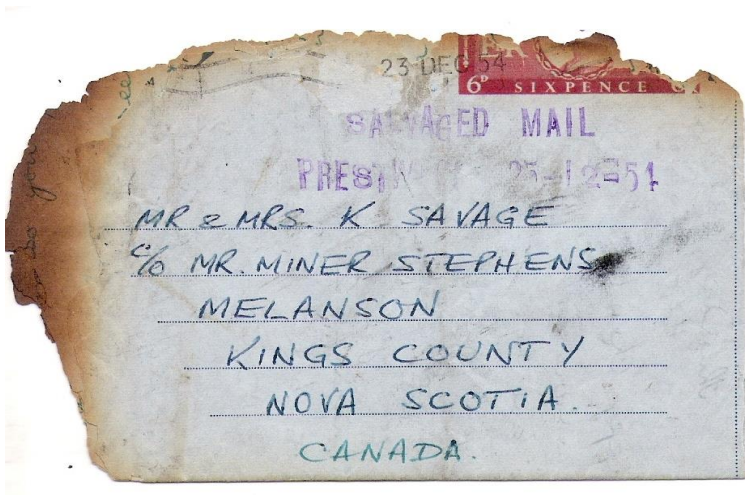 23 DEC 54
6D SIXPENCE
SALVAGED MAIL
PRESTWICK 25-12-54
MR & MRS. K SAVAGE
C/O MR. MINER STEPHENS
MELANSON
KINGS COUNTY
NOVA SCOTIA.
CANADA.